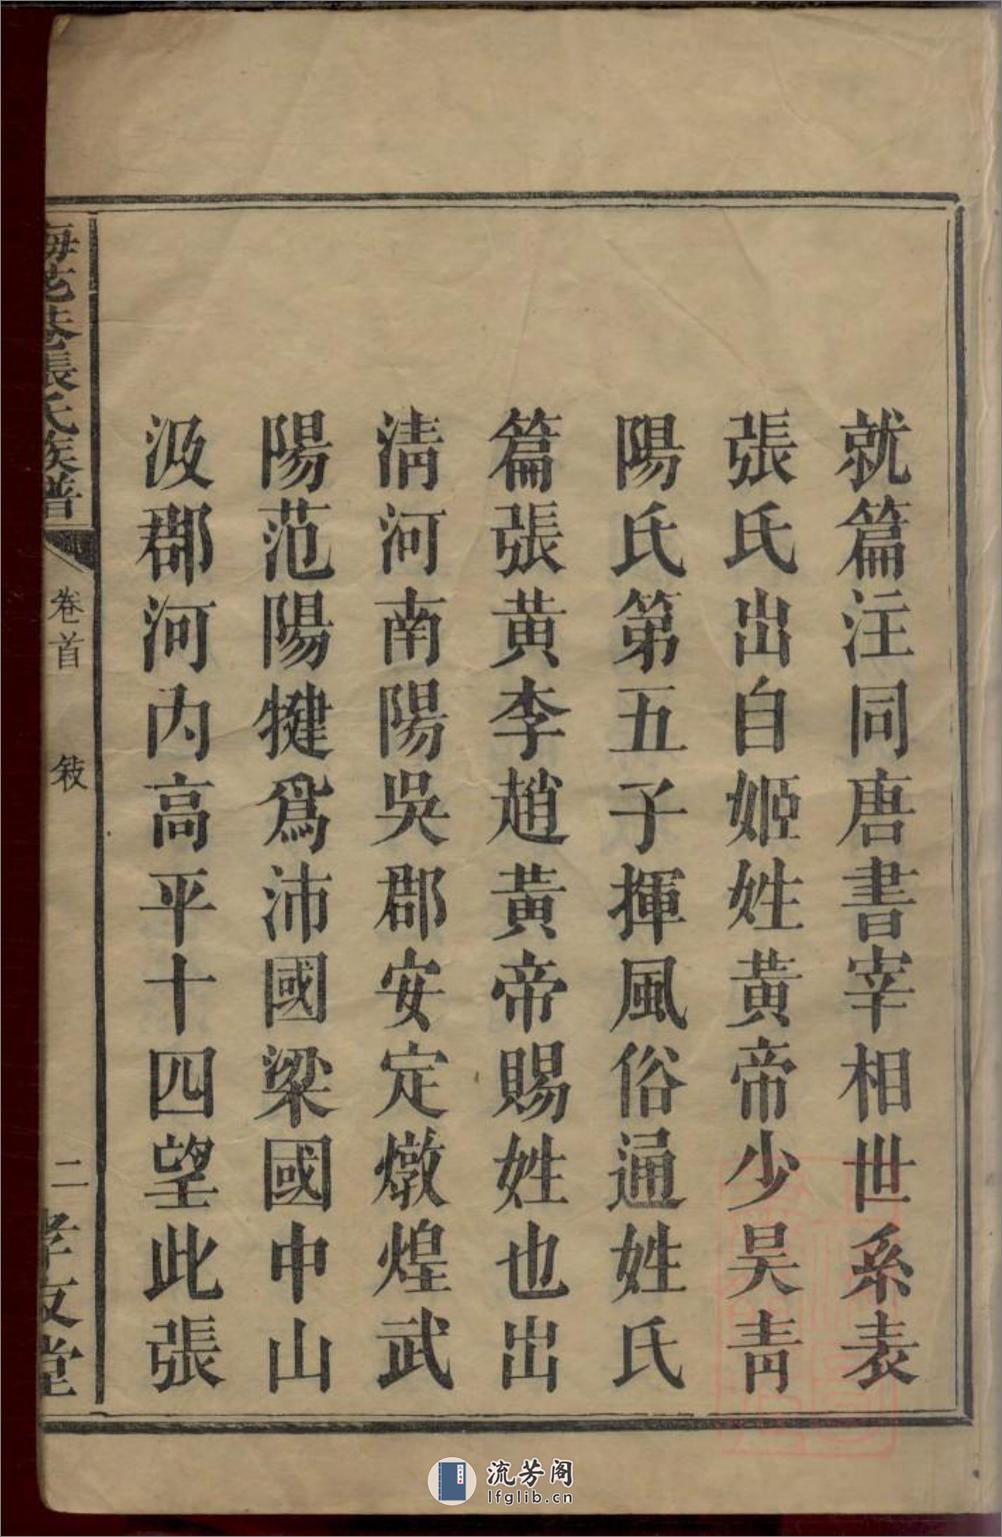 就篇注同唐書宰相世系表
張氏出自姬姓黃帝少昊青
陽氏第五子揮風俗通姓氏
篇張黃李趙黃帝賜姓也出
淸河南陽吳郡安定燉煌武
陽范陽犍爲沛國梁國中山
汲郡河內高平十四望此張
梅花巷張氏族譜
卷首
敍
二
孝友堂
流芳阁
lfglib.cn